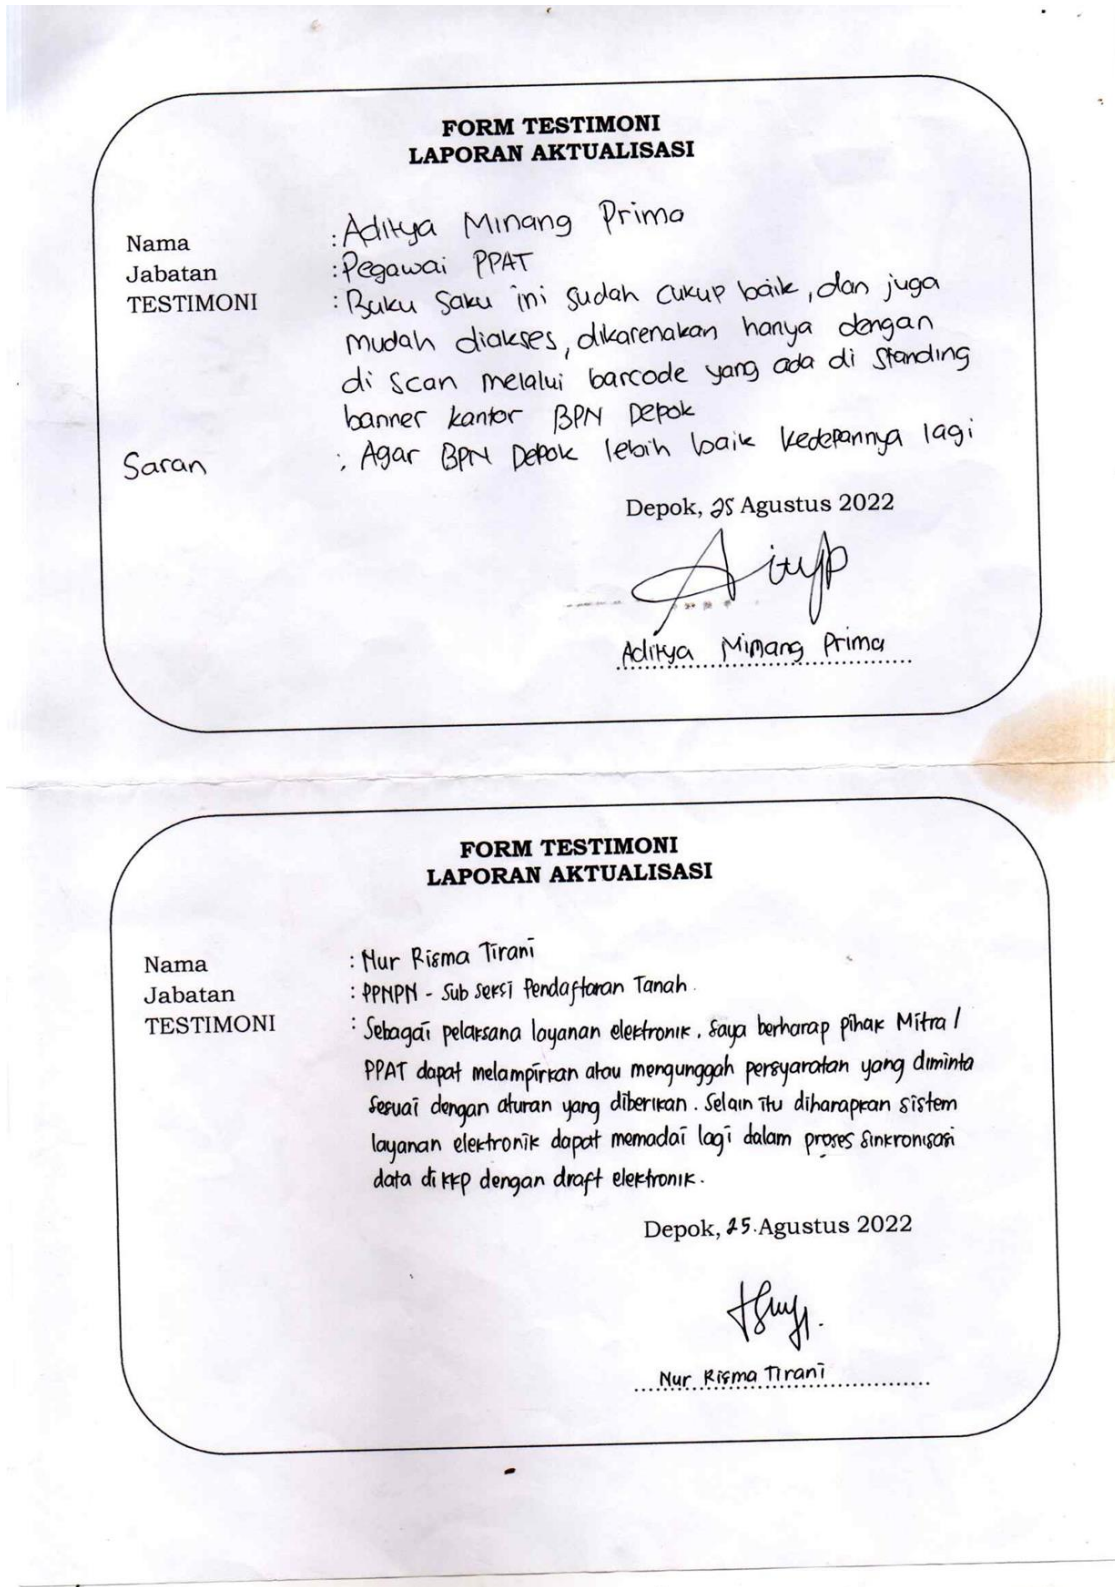 FORM TESTIMONI
LAPORAN AKTUALISASI
Nama : Aditya Minang Prima
Jabatan : Pegawai PPAT
TESTIMONI : Buku Saku ini sudah cukup baik, dan juga
mudah diakses, dikarenakan hanya dengan
di scan melalui barcode yang ada di standing
banner kantor BPN Depok
Saran : Agar BPN Depok lebih baik kedepannya lagi
Depok, 25 Agustus 2022
Aditya Minang Prima
FORM TESTIMONI
LAPORAN AKTUALISASI
Nama : Nur Risma Tirani
Jabatan : PPNPN - Sub Seksi Pendaftaran Tanah.
TESTIMONI : Sebagai pelaksana layanan elektronik. Saya berharap pihak Mitra /
PPAT dapat melampirkan atau mengunggah persyaratan yang diminta
sesuai dengan aturan yang diberikan. Selain itu diharapkan sistem
layanan elektronik dapat memadai lagi dalam proses sinkronisasi
data di KKP dengan draft elektronik.
Depok, 25. Agustus 2022
Nur Risma Tirani